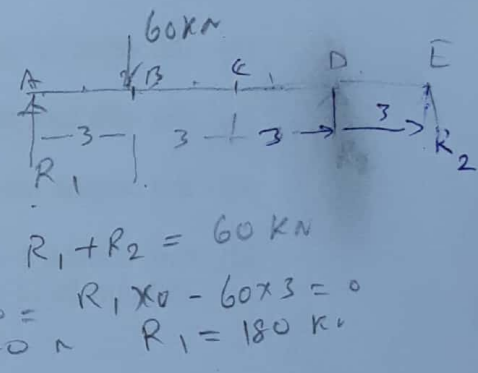 60KN
A B C D E
3 3 3 3
R1 R2
R1 + R2 = 60 KN
= R1 x0 - 60x3 = 0
R1 = 180